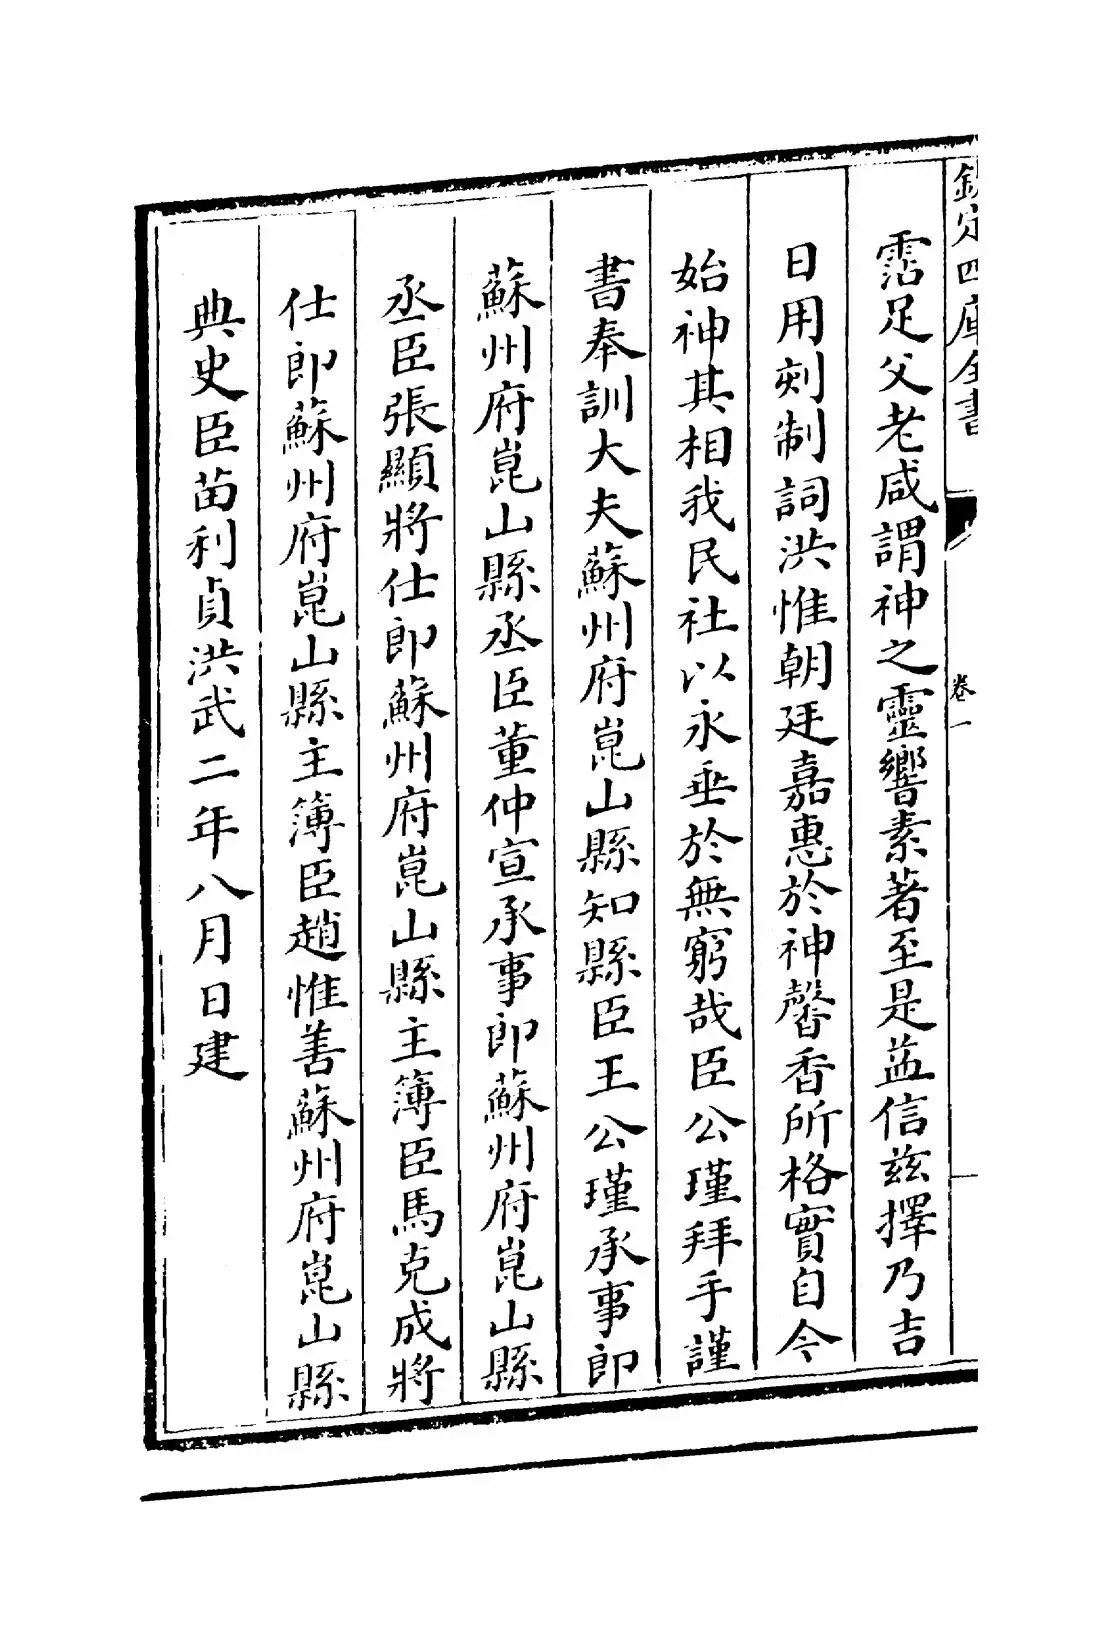 欽定四庫全書
卷一
霑足父老咸謂神之靈響素著至是益信兹擇乃吉
日用刻制詞洪惟朝廷嘉惠於神馨香所格實自今
始神其相我民社以永垂於無窮哉臣公瑾拜手謹
書奉訓大夫蘇州府崑山縣知縣臣王公瑾承事郎
蘇州府崑山縣丞臣董仲宣承事郎蘇州府崑山縣
丞臣張顯將仕郎蘇州府崑山縣主簿臣馬克成將
仕郎蘇州府崑山縣主簿臣趙惟善蘇州府崑山縣
典史臣苗利貞洪武二年八月日建